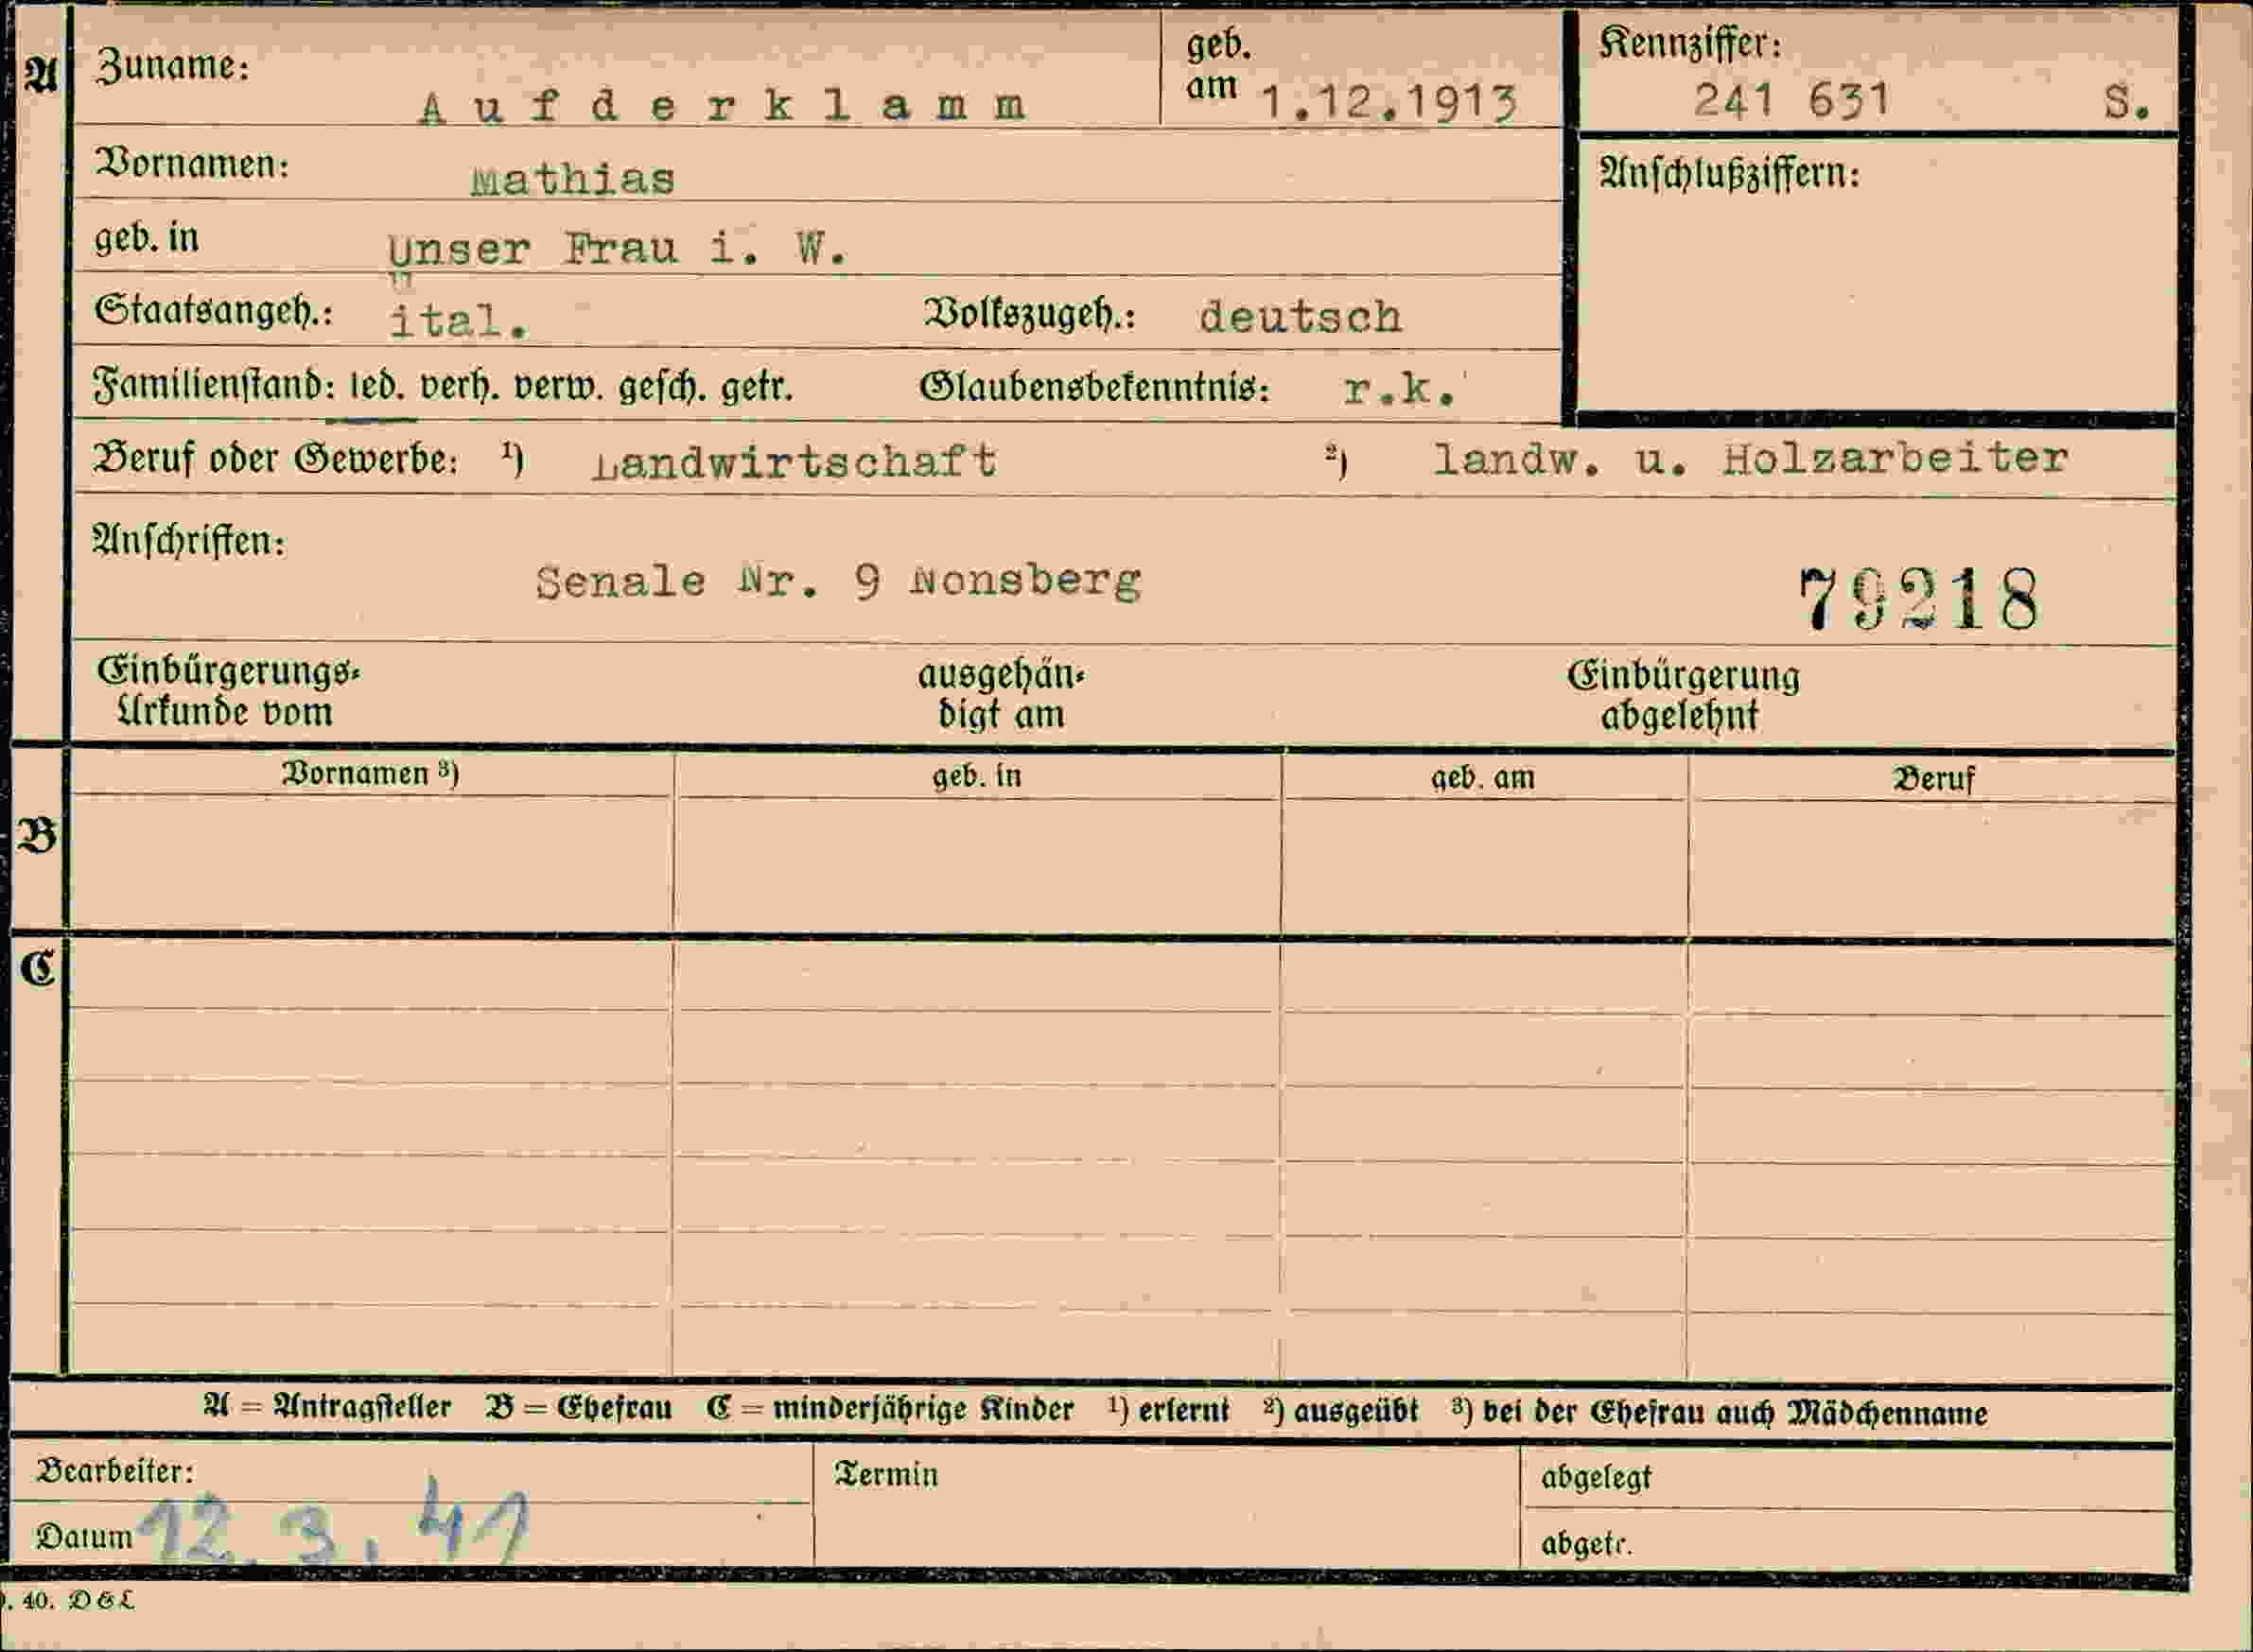 A Zuname: Aufderklamm geb. am 1.12.1913 Kennziffer: 241 631 S.
Vornamen: Mathias Anschlußziffern:
geb. in Unser Frau i. W.
Staatsangeh.: ital. Volkszugeh.: deutsch
Familienstand: led. verh. verw. gesch. getr. Glaubensbekenntnis: r.k.
Beruf oder Gewerbe: ¹) Landwirtschaft ²) landw. u. Holzarbeiter
Anschriften:
Senale Nr. 9 Nonsberg 79218
Einbürgerungs- ausgehän- Einbürgerung
Urkunde vom digt am abgelehnt
Vornamen ³) geb. in geb. am Beruf
B
C
A = Antragsteller B = Ehefrau C = minderjährige Kinder ¹) erlernt ²) ausgeübt ³) bei der Ehefrau auch Mädchenname
Bearbeiter: Termin abgelegt
Datum 12.3.41 abgetr.
. 40. D & L